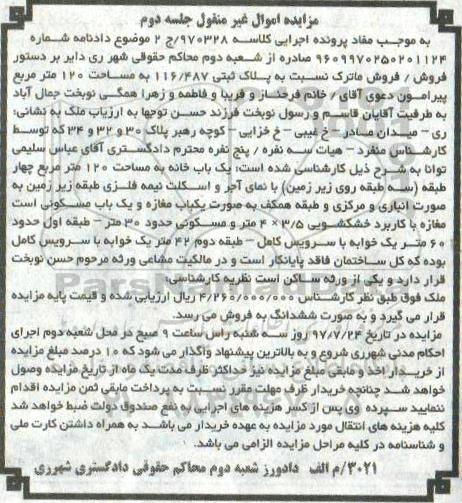 مزایده اموال غیر منقول جلسه دوم
به موجب مفاد پرونده اجرایی کلاسه ۹۷۰۳۲۸/ج ۲ موضوع دادنامه شماره
۹۶۰۹۹۷۰۲۵۰۲۰۱۱۲۴ صادره از شعبه دوم محاکم حقوقی شهر ری دایر بر دستور
فروش / فروش ماترک نسبت به پلاک ثبتی ۱۱۶/۴۸۷ به مساحت ۱۲۰ متر مربع
پیرامون دعوی آقای / خانم فرحناز و فریبا و فاطمه و زهرا همگی نوبخت جمال آباد
به طرفیت آقایان قاسم و رسول نوبخت فرزند حسن توجها به ارزیاب ملک به نشانی:
ری – میدان صادر – خ غیبی – خ خزایی – کوچه رهبر پلاک ۳۰ و ۳۲ و ۳۴ که توسط
کارشناس منفرد – هیات سه نفره / پنج نفره محترم دادگستری آقای عباس سلیمی
توانا به شرح ذیل کارشناسی شده است: یک باب خانه به مساحت ۱۲۰ متر مربع چهار
طبقه (سه طبقه روی زیر زمین) با نمای آجر و اسکلت نیمه فلزی طبقه زیر زمین به
صورت انباری و مرکزی و طبقه همکف به صورت یکباب مغازه و یک باب مسکونی است
مغازه با کاربرد خشکشویی ۳/۵ × ۴ متر و مسکونی حدود ۳۰ متر – طبقه اول حدود
۶۰ متر یک خوابه با سرویس کامل – طبقه دوم ۴۲ متر یک خوابه با سرویس کامل
بوده که کل ساختمان فاقد پایانکار است و در مالکیت مشاعی ورثه مرحوم حسن نوبخت
قرار دارد و یکی از ورثه ساکن است نظریه کارشناسی:
ملک فوق طبق نظر کارشناس ۴/۲۶۰/۰۰۰/۰۰۰ ریال ارزیابی شده و قیمت پایه مزایده
قرار می گیرد و به صورت ششدانگ به فروش می رسد.
مزایده در تاریخ ۹۷/۷/۲۴ روز سه شنبه راس ساعت ۹ صبح در محل شعبه دوم اجرای
احکام مدنی شهرری شروع و به بالاترین پیشنهاد واگذار می شود که ۱۰ درصد مبلغ مزایده
از خریدار اخذ و مابقی مبلغ مزایده نیز حداکثر ظرف مدت یک ماه از تاریخ مزایده وصول
خواهد شد چنانچه خریدار ظرف مهلت مقرر نسبت به پرداخت مابقی ثمن مزایده اقدام
ننمایید سپرده وی پس از کسر هزینه های اجرایی به نفع صندوق دولت ضبط خواهد شد
کلیه هزینه های انتقال مورد مزایده به عهده خریدار می باشد به همراه داشتن کارت ملی
و شناسنامه در کلیه مراحل مزایده الزامی می باشد.
۳۰۲۱/م الف دادورز شعبه دوم محاکم حقوقی دادگستری شهرری